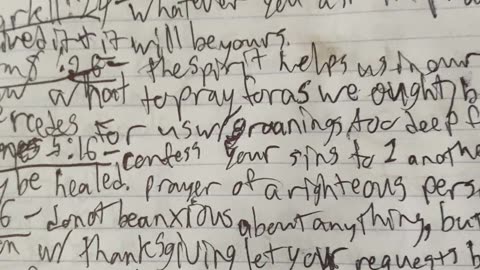 ark 11:24 - whatever you a
ived it & it will be yours.
:26 - the spirit helps us in our
w what to pray for as we ought, b
ercedes for us w/ groanings too deep f
5:16 - confess your sins to 1 anothe
y be healed. prayer of a righteous pers
6 - do not be anxious about anything, but
on w/ thanksgiving let your requests b